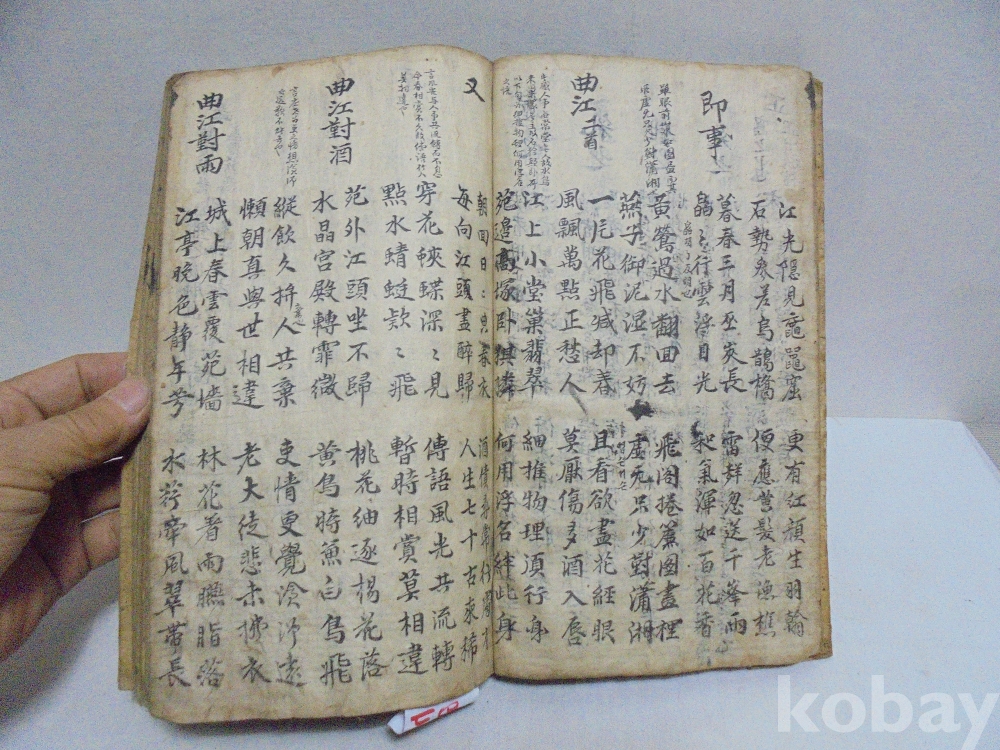 江光隱見黿鼉窟 更有紅顔生羽翰
石勢參差烏鵲橋 便應黃髮老漁樵
即事
暮春三月巫峽長 雷聲忽送千峰雨
晶ミ行雲浮日光 和氣渾如百花香
黃鶯過水翻回去 飛閣捲簾圖畫裡
燕子御泥濕不妨 虛无只少對瀟湘
曲江二首
一片花飛減却春 且看欲盡花經眼
風飄萬點正愁人 莫厭傷多酒入唇
江上小堂巢翡翠 細推物理須行身
苑邉高塚臥猉獜 何用浮名絆此身
又
朝回日ミ典春衣 酒債尋常行處才
每向江頭盡醉歸 人生七十古來稀
穿花蛺蝶深ミ見 傳語風光共流轉
點水蜻蜓款ミ飛 暫時相賞莫相違
曲江對酒
苑外江頭坐不歸 桃花細逐楊花落
水晶宮殿轉霏微 黃鳥時兼白鳥飛
縱飲久拚人共棄 吏情更覺滄洲遠
懶朝真與世相違 老大徒悲未拂衣
曲江對雨
城上春雲覆苑墻 林花著雨臙脂落
江亭晚色静年芳 水荇牽風翠帶長
kobay